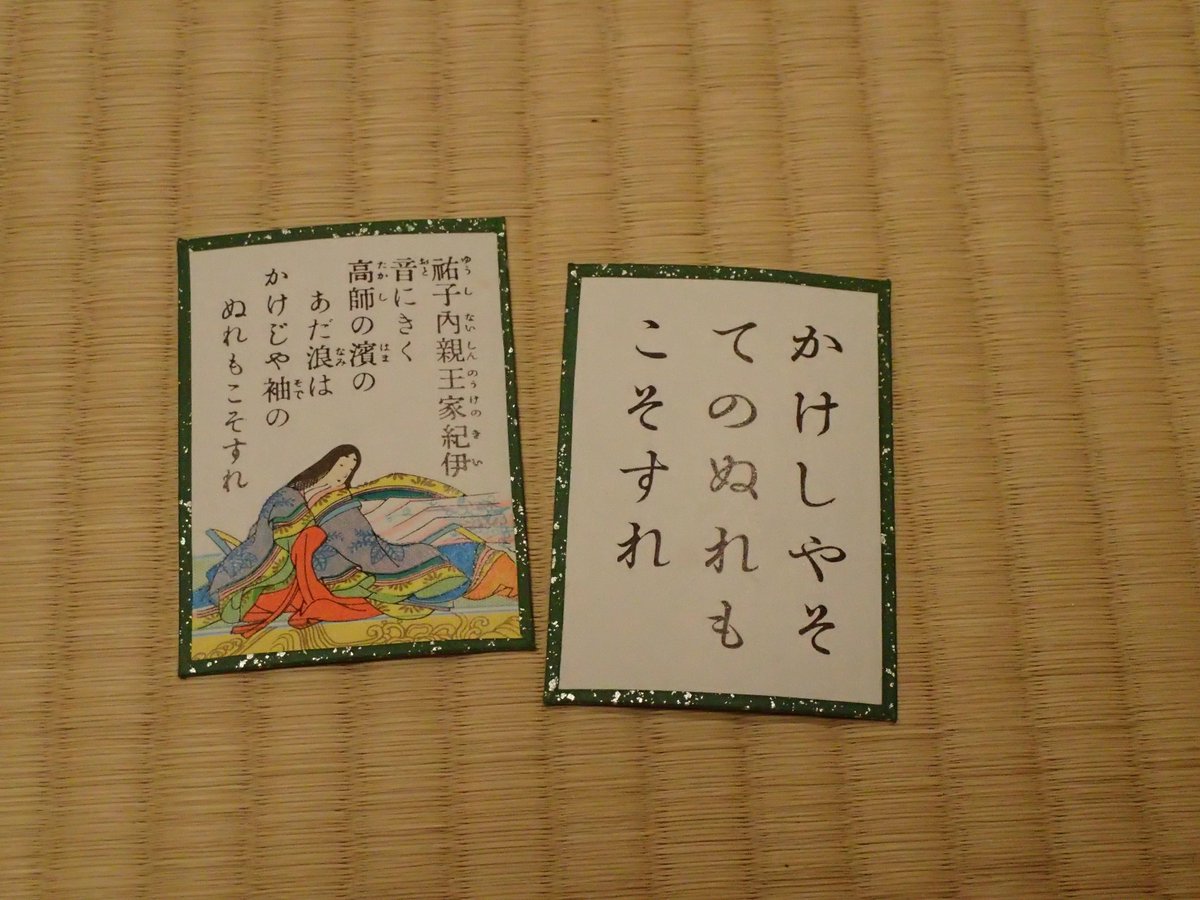 祐子内親王家紀伊
音にきく
高師の濱の
あだ浪は
かけじや袖の
ぬれもこそすれ
かけしやそ
てのぬれも
こそすれ